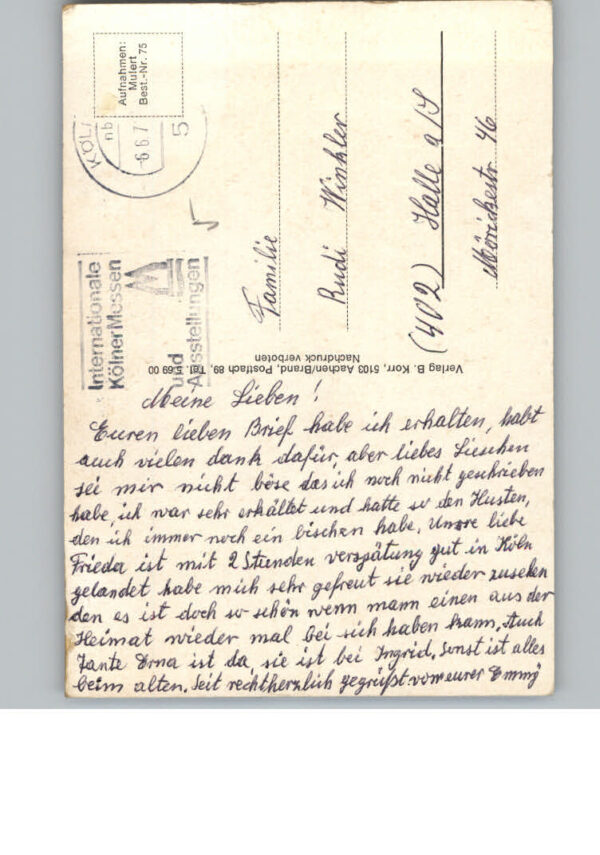 Aufnahmen:
Mulert
Best.-Nr. 75
KÖL
nb
-6 6.7
5
Internationale
Kölner Messen
und
Ausstellungen
Familie
Rudi Winkler
(402) Halle a/S
46
Verlag B. Korr, 5103 Aachen/Brand, Postfach 89, Tel. 5 69 00
Nachdruck verboten
Meine Lieben!
Euren lieben Brief habe ich erhalten, habt
auch vielen dank dafür, aber liebes Lieschen
sei mir nicht böse das ich noch nicht geschrieben
habe, ich war sehr erkältet und hatte so den Husten,
den ich immer noch ein bischen habe. Unsre liebe
Frieda ist mit 2 Stunden verspätung gut in Köln
gelandet habe mich sehr gefreut sie wieder zusehen
den es ist doch so schön wenn mann einen aus der
Heimat wieder mal bei sich haben kann. Auch
Tante Erna ist da, sie ist bei Ingrid. Sonst ist alles
beim alten. Seit rechtherzlich gegrüßt von eurer Emmy